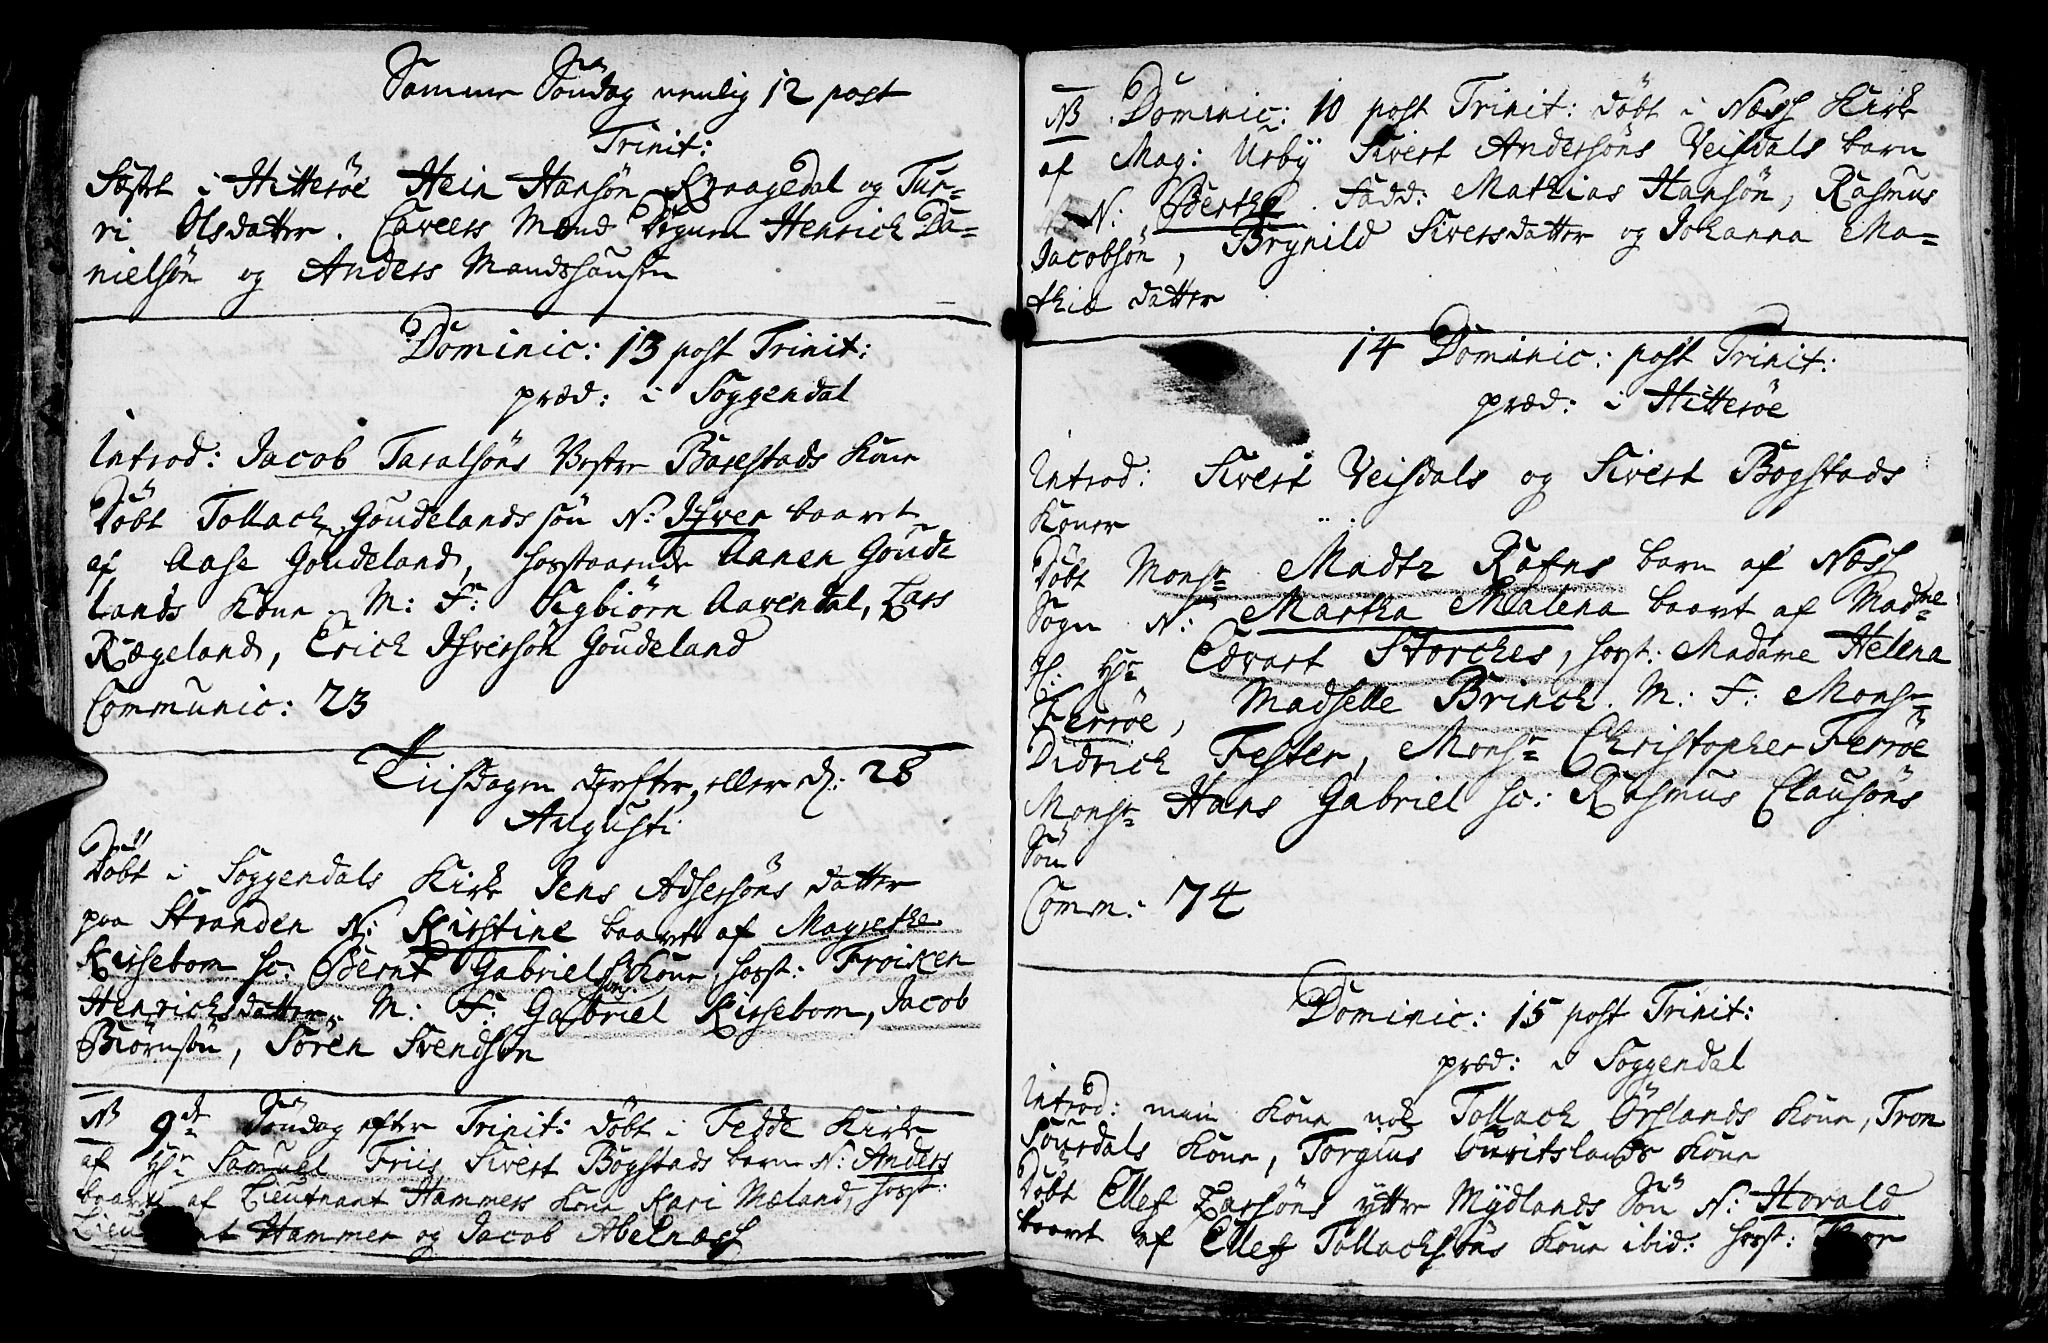 Samme Søndag nemlig 12 post
Trinit:
Fæstet i Hitterøe Hein Hansøn Kraagedal og Tur-
ri Olsdatter. Caveers Mænd Tegum Henrich Da-
nielsøn og Anders Mandshausen
Dominic: 13 post Trinit:
præd: i Soggendal
Introd: Jacob Taralsøns Vestre Barestads Kone
Døbt Tollach Goudelands søn N: Isver baaret
af Aase Goudeland, forstaaende Aanen Goude
lands Kone. M: F: Sigbiørn Aavendal, Lars
Rægeland, Erich Isversøn Goudeland
Communic: 23
Tiisdagen derefter, eller d: 28
Augusti
Døbt i Soggendals Kirke Jens Adsersøns datter
paa Stranden N: Kirstine baaret af Magrethe
Kirsebom sc: Bernt Gabriels Kone, forst: Froiken
Henrichsdatter. M: F: Gabriel Kirsebom, Jacob
Biørnsøn, Søren Svendsøn
NB 9de Søndag efter Trinit: døbt i Fedde Kirke
af Hr Samuel Friis Sivert Bogstads barn N: Anders
baaret af Lieutnant Hammers Kone Kari Mæland, forst:
Hammer og Jacob Abelnæss
NB. Dominic: 10 post Trinit: døbt i Næss Kirke
af Mag: Urbÿ Sivert Andersøns Veisdals barn
N: Berthe. Fadd: Mathias Hansøn, Rasmus
Jacobsøn, Brynild Siversdatter og Johanna Ma-
thiæ datter
14 Dominic: post Trinit:
præd: i Hitterøe
Introd: Sivert Veisdals og Sivert Bogstads
Koner
Døbt Monsr Madtz Rafns barn af Næss
Sogn N: Martha Malena baaret af Madme
Sl: Hr Edvart Storches, forst: Madame Helena
Ferrøe, Madselle Brinch. M: F: Monsr
Didrich Fester, Monsr Christopher Ferrøe
Monsr Hans Gabriel sc: Rasmus Clausøns
Søn
Comm: 74
Dominic: 15 post Trinit:
præd: i Soggendal
Introd: min Kone nok Tollach Ørslands Kone, Tron
Sourdals Kone, Torgius Guritslands Kone
Døbt Ellef Larsøns ytre Mÿdlands Søn N: Horald
baaret af Ellef Tollachsøns Kone ibid: forst: